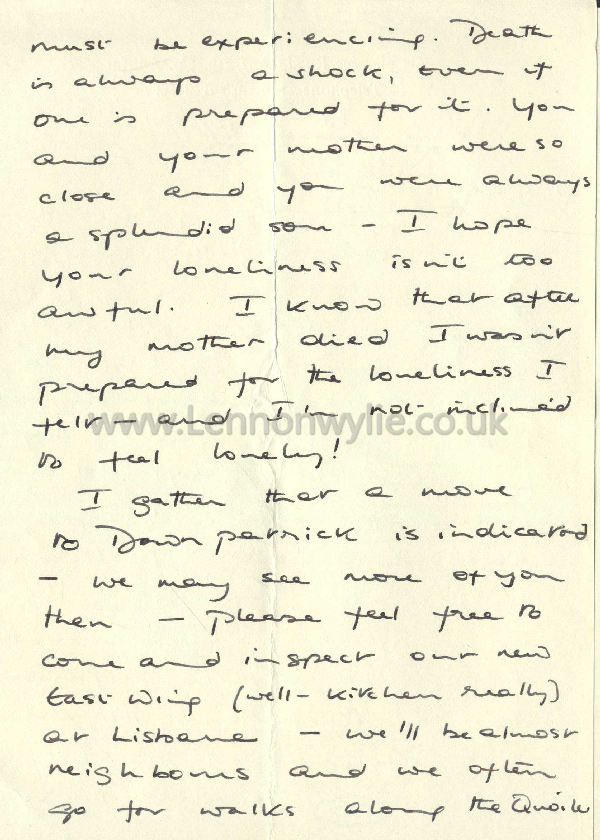 must be experiencing. Death
is always a shock, even if
one is prepared for it. You
and your mother were so
close and you were always
a splendid son - I hope
your loneliness isn't too
awful. I know that after
my mother died I wasn't
prepared for the loneliness I
felt - and I'm not inclined
www.Lennonwylie.co.uk
to feel lonely!
I gather that a move
to Downpatrick is indicated
- we may see more of you
then - please feel free to
come and inspect our new
East Wing (well - kitchen really)
at Lisbane - we'll be almost
neighbours and we often
go for walks along the Quoile